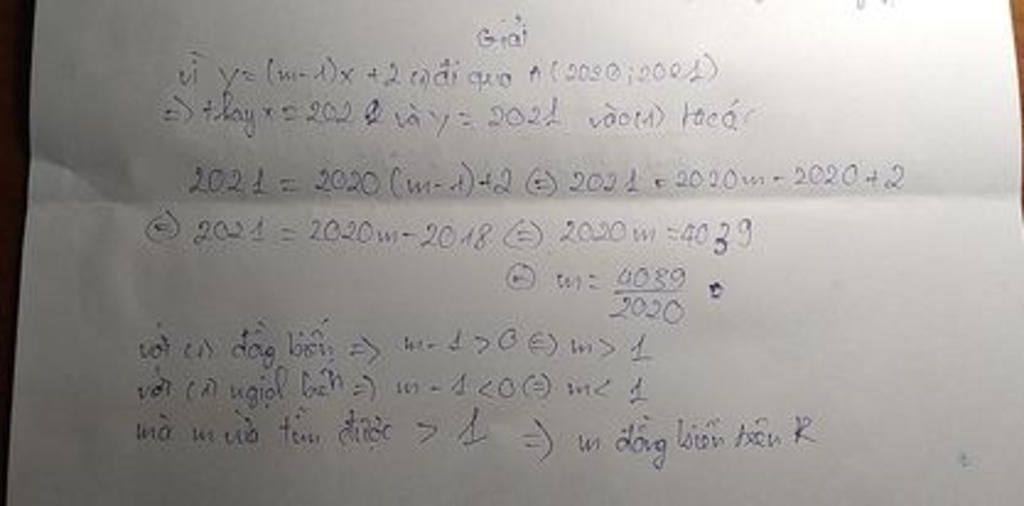 Giải
Vì y = (m-1)x + 2 (1) đi qua A (2020; 2021)
=> thay x = 2020 và y = 2021 vào (1) ta có:
2021 = 2020 (m-1)+2 (=) 2021 = 2020m - 2020 + 2
(=) 2021 = 2020m - 2018 (=) 2020m = 4039
(=) m = 4039/2020
với (1) đồng biến => m - 1 > 0 (=) m > 1
với (1) nghịch biến => m - 1 < 0 (=) m < 1
mà m vừa tìm được > 1 => m đồng biến trên R